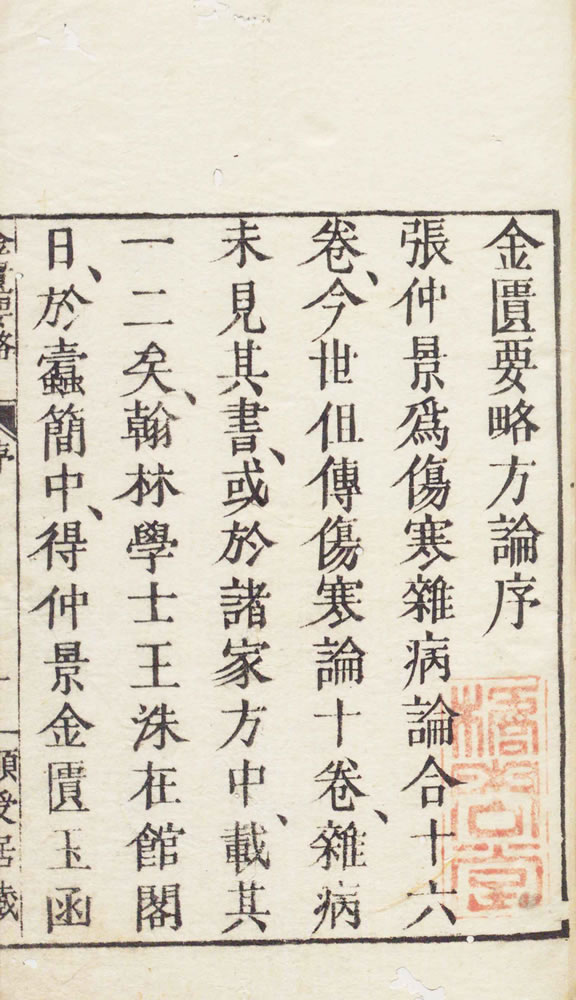 金匱要略方論序
張仲景爲傷寒雜病論合十六
卷、今世但傳傷寒論十卷、雜病
未見其書、或於諸家方中、載其
一二矣、翰林學士王洙在館閣
日、於蠹簡中、得仲景金匱玉函
金匱要略 序 一